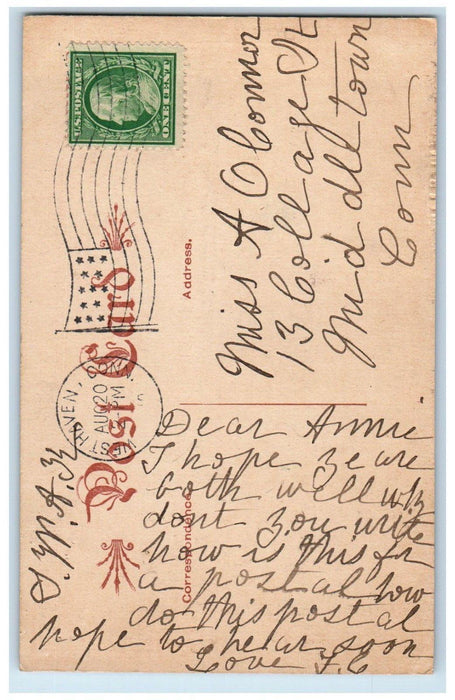 U.S. POSTAGE
ONE CENT
Post Card
WEST HAVEN, CONN.
AUG 20
2-PM
Address.
Miss A O Connor
13 Collage St
Middletown
Conn
Correspondence.
Dear Annie
I hope ze are
both well why
dont you write
how is this fr
a postal how
do this postal
hope to hear soon
Love J.C